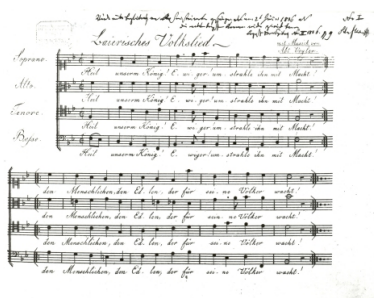 No I
Baierisches Volkslied
mit Musik von
Abt Vogler
Soprano.
Heil unserm König! E. wiger! um strahle ihn mit Macht!
Alto.
Heil unserm König! E. wiger! um strahle ihn mit Macht!
Tenore.
Heil unserm König! E. wiger! um strahle ihn mit Macht!
Basso.
Heil unserm König! E. wiger! um strahle ihn mit Macht!
den Menschlichen, den Ed len, der für sei ne Völker wacht!
den Menschlichen, den Ed len, der für sei ne Völker wacht!
den Menschlichen, den Ed len, der für sei ne Völker wacht!
den Menschlichen, den Ed len, der für sei ne Völker wacht!